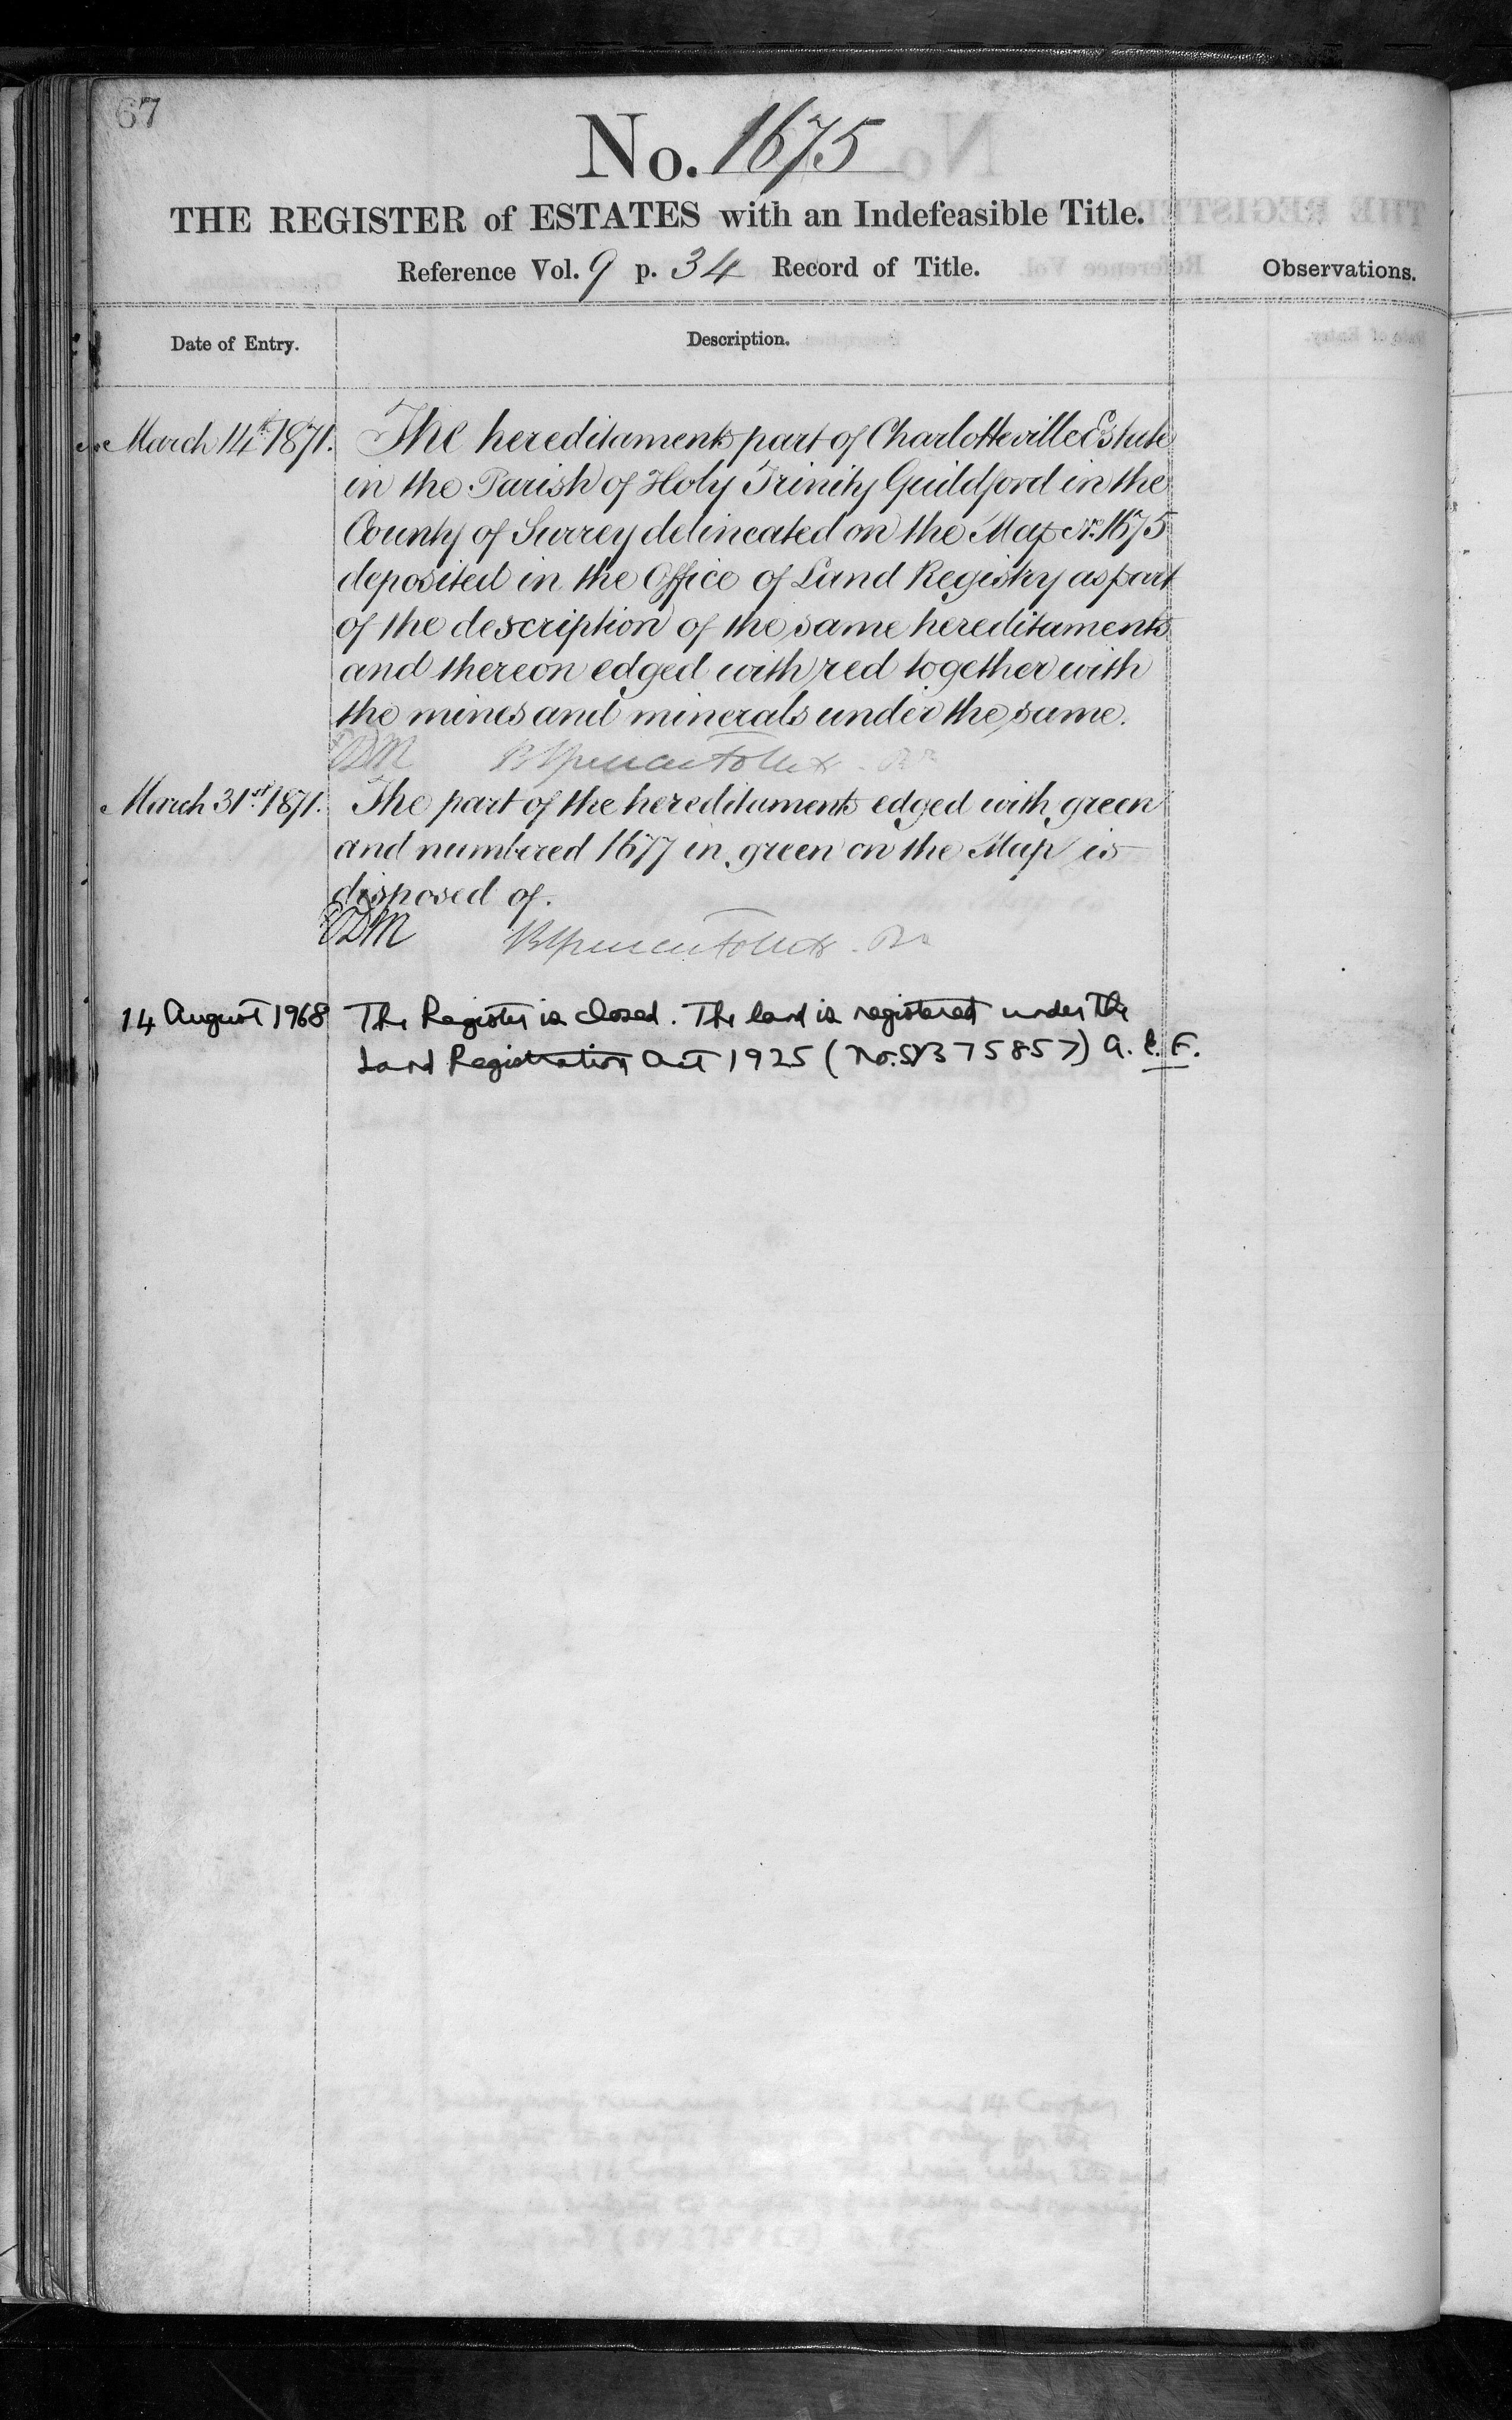 67
No. 1675
THE REGISTER of ESTATES with an Indefeasible Title.
Reference Vol. 9 p. 34 Record of Title.
Observations.
Date of Entry.
Description.
March 14th 1871.
The hereditaments part of Charlotteville Estate
in the Parish of Holy Trinity Guildford in the
County of Surrey delineated on the Map No. 1675
deposited in the Office of Land Registry as part
of the description of the same hereditaments
and thereon edged with red together with
the mines and minerals under the same.
EDM
March 31st 1871.
The part of the hereditaments edged with green
and numbered 1677 in green on the Map is
disposed of.
EDM
14 August 1968
The Register is closed. The land is registered under the
Land Registration Act 1925 (No. SY375857) A. E. F.